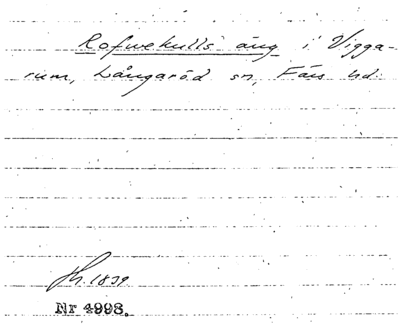 Rofwekulls äng i Vigga-
rum, Långaröd sn, Färs hd.
Hs. 1839
Nr 4998.